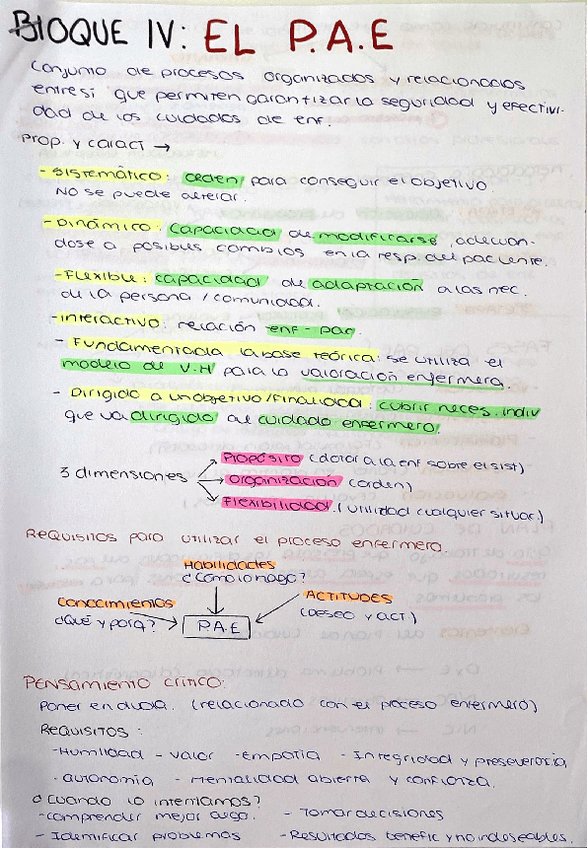 BLOQUE IV: EL P.A.E
Conjunto de procesos organizados y relacionados
entre si que permiten garantizar la seguridad y efectivi-
dad de los cuidados de enf.
Prop. y caract →
- Sistemático: orden para conseguir el objetivo
No se puede alterar.
- Dinámico: capacidad de modificarse, adecuan-
dose a posibles cambios en la resp. del paciente.
- Flexible: capacidad de adaptación a las nec.
de la persona / comunidad.
- interactivo: relación enf - pac.
- Fundamentada la base teórica: se utiliza el
modelo de V.H para la valoración enfermera.
- Dirigido a un objetivo/Finalidad: cubrir neces. indiv
que va dirigido al cuidado enfermero.
Propósito (dotar a la enf sobre el sist)
3 dimensiones organización (orden)
Flexibilidad. (utilidad cualquier situar.)
Requisitos para utilizar el proceso enfermero.
Habilidades
¿Cómo lo hago?
Conocimientos
¿Qué y porq?
ACTITUDES
(Deseo y act)
P.A.E
PENSAMIENTO CRÍTICO:
Poner en duda. (relacionado con el proceso enfermero)
REQUISITOS:
- Humildad - valor - empatia - Integridad y preseverancia
- autonomia - Mentalidad abierta y confianza.
¿Cuando lo intentamos?
- comprender mejor algo. - Tomar decisiones
- Identificar problemas - Resultados benefic y no indeseables.